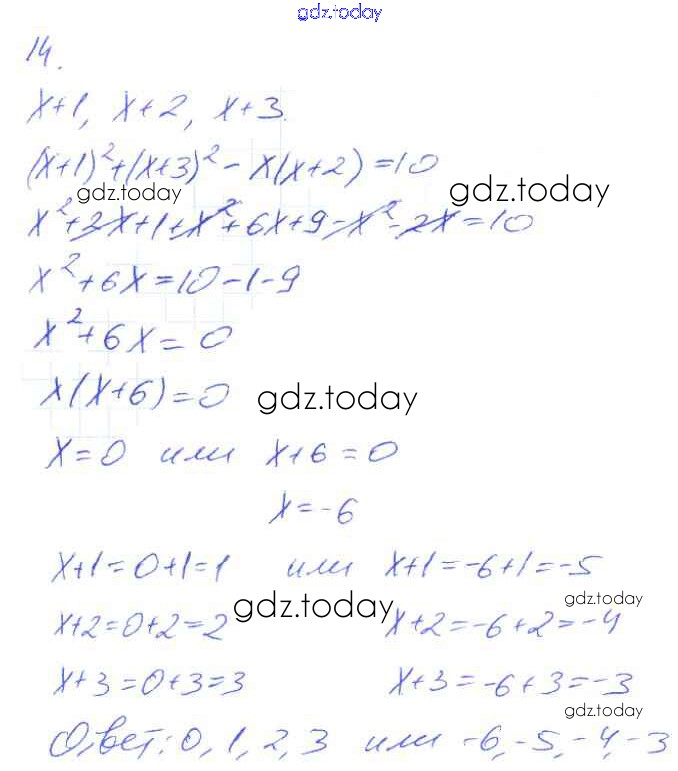 gdz.today
14.
x+1, x+2, x+3.
(x+1)²+(x+3)² - x(x+2)=10
gdz.today gdz.today
x²+2x+1+x²+6x+9-x²-2x=10
x²+6x=10-1-9
x²+6x=0
x(x+6)=0 gdz.today
x=0 или x+6=0
x=-6
x+1=0+1=1 или x+1=-6+1=-5
gdz.today gdz.today
x+2=0+2=2 x+2=-6+2=-4
x+3=0+3=3 x+3=-6+3=-3
gdz.today
Ответ: 0, 1, 2, 3 или -6,-5,-4,-3